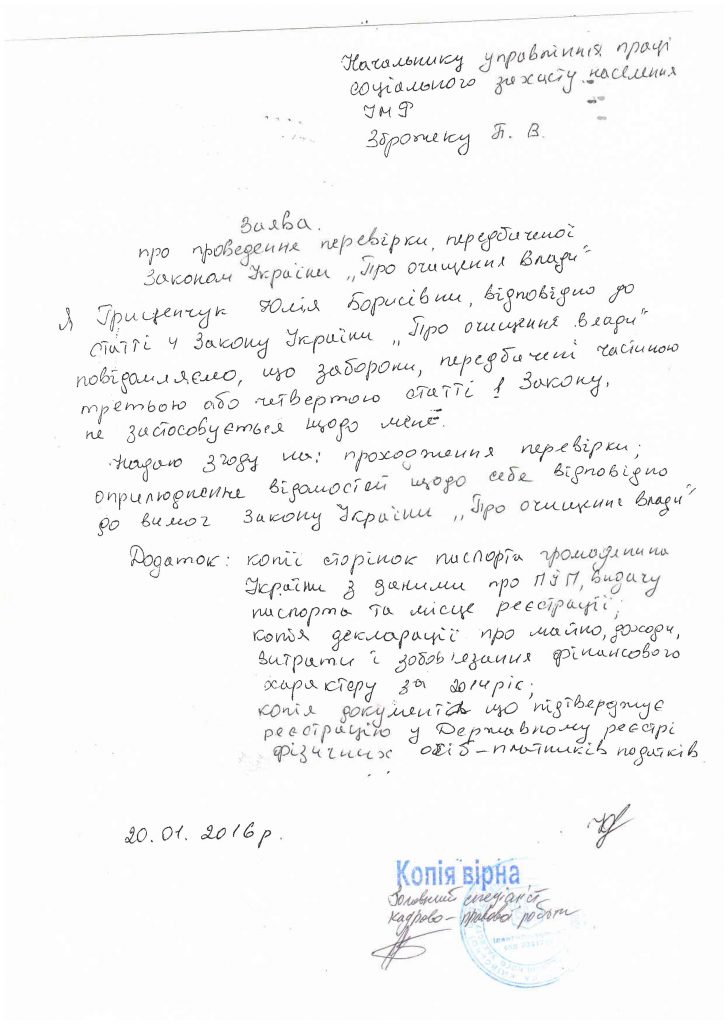 Начальнику управління праці
соціального захисту населення
ІМФ
Зброжеку П. В.
Заява.
про проведення перевірки, передбаченої
Законом України „Про очищення влади"
Я Грищенчук Юлія Борисівни, відповідно до
статті 4 Закону України „Про очищення влади"
повідомляємо, що заборони, передбачені частиною
третьою або четвертою статті 1 Закону,
не застосовується щодо мене.
Надаю згоду на: проходження перевірки;
оприлюднення відомостей щодо себе відповідно
до вимог Закону України „Про очищення влади"
Додаток: копії сторінок паспорта громадянина
України з даними про ПІП, видачу
паспорта та місце реєстрації;
копія декларації про майно, доходи,
витрати і зобов'язання фінансового
характеру за 2014 рік;
копія документів що підтверджує
реєстрацію у Державному реєстрі
фізичних осіб-платників податків
20.01.2016 р.
Копія вірна
Головний спеціаліст
кадрово-правової роботи